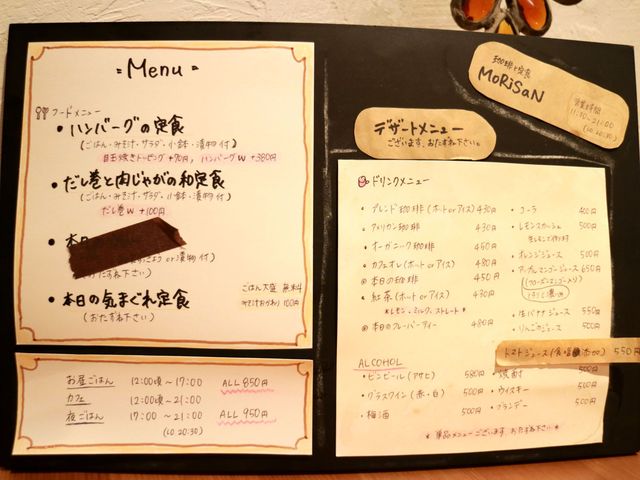 = Menu =
フードメニュー
• ハンバーグの定食
(ごはん・みそ汁・サラダ・小鉢・漬物付)
目玉焼きトッピング +70円, ハンバーグW +380円
• だし巻と肉じゃがの和定食
(ごはん・みそ汁・サラダ・小鉢・漬物付)
だし巻W +100円
• 本日
or 漬物付)
(おたずね下さい)
ごはん大盛 無料
みそ汁おかわり 100円
• 本日の気まぐれ定食
(おたずね下さい)
お昼ごはん 12:00頃~17:00 ALL 850円
カフェ 12:00頃~21:00
夜ごはん 17:00~21:00 ALL 950円
(LO 20:30)
珈琲と定食
MoRiSaN
営業時間
11:30~21:00
(LO 20:30)
デザートメニュー
ございます、おたずね下さい。
ドリンクメニュー
• ブレンド珈琲 (ホット or アイス) 430円
• アメリカン珈琲 430円
• オーガニック珈琲 450円
• カフェオレ (ホット or アイス) 480円
◎ 本日の珈琲 450円
• 紅茶 (ホット or アイス) 430円
*レモン・ミルク・ストレート*
◎ 本日のフレーバーティー 480円
• コーラ 400円
• レモンスカッシュ 500円
生レモンで作ります
• オレンジジュース 500円
• アップルマンゴージュース 650円
(フローズンマンゴー入り)
• 生バナナジュース 550円
• りんごジュース 500円
トマトジュース(食塩無添加) 550円
ALCOHOL
• ビンビール (アサヒ) 580円
• グラスワイン (赤・白) 500円
• 梅酒 500円
• 焼酎 500円
• ウイスキー 500円
• ブランデー 500円
* 単品メニューございます、おたずね下さい *